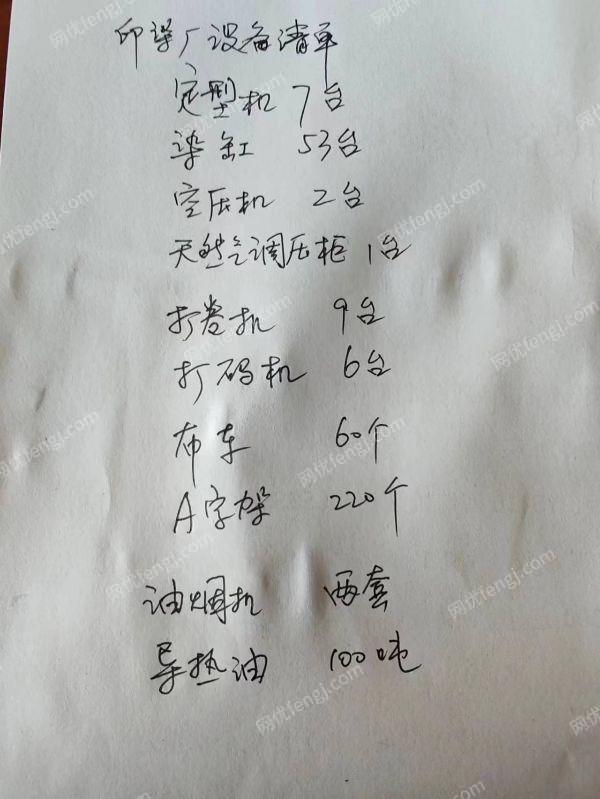 印染厂设备清单
定型机 7台
染缸 53台
空压机 2台
天然气调压柜 1台
打卷机 9台
打码机 6台
布车 60个
A字架 220个
油烟机 两套
导热油 100吨
网优fengj.com